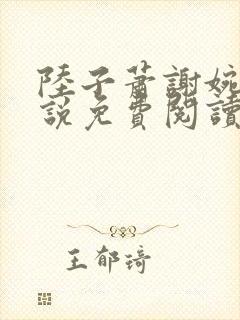 陸子蕭謝婉
說免費閱讀
王郁琦